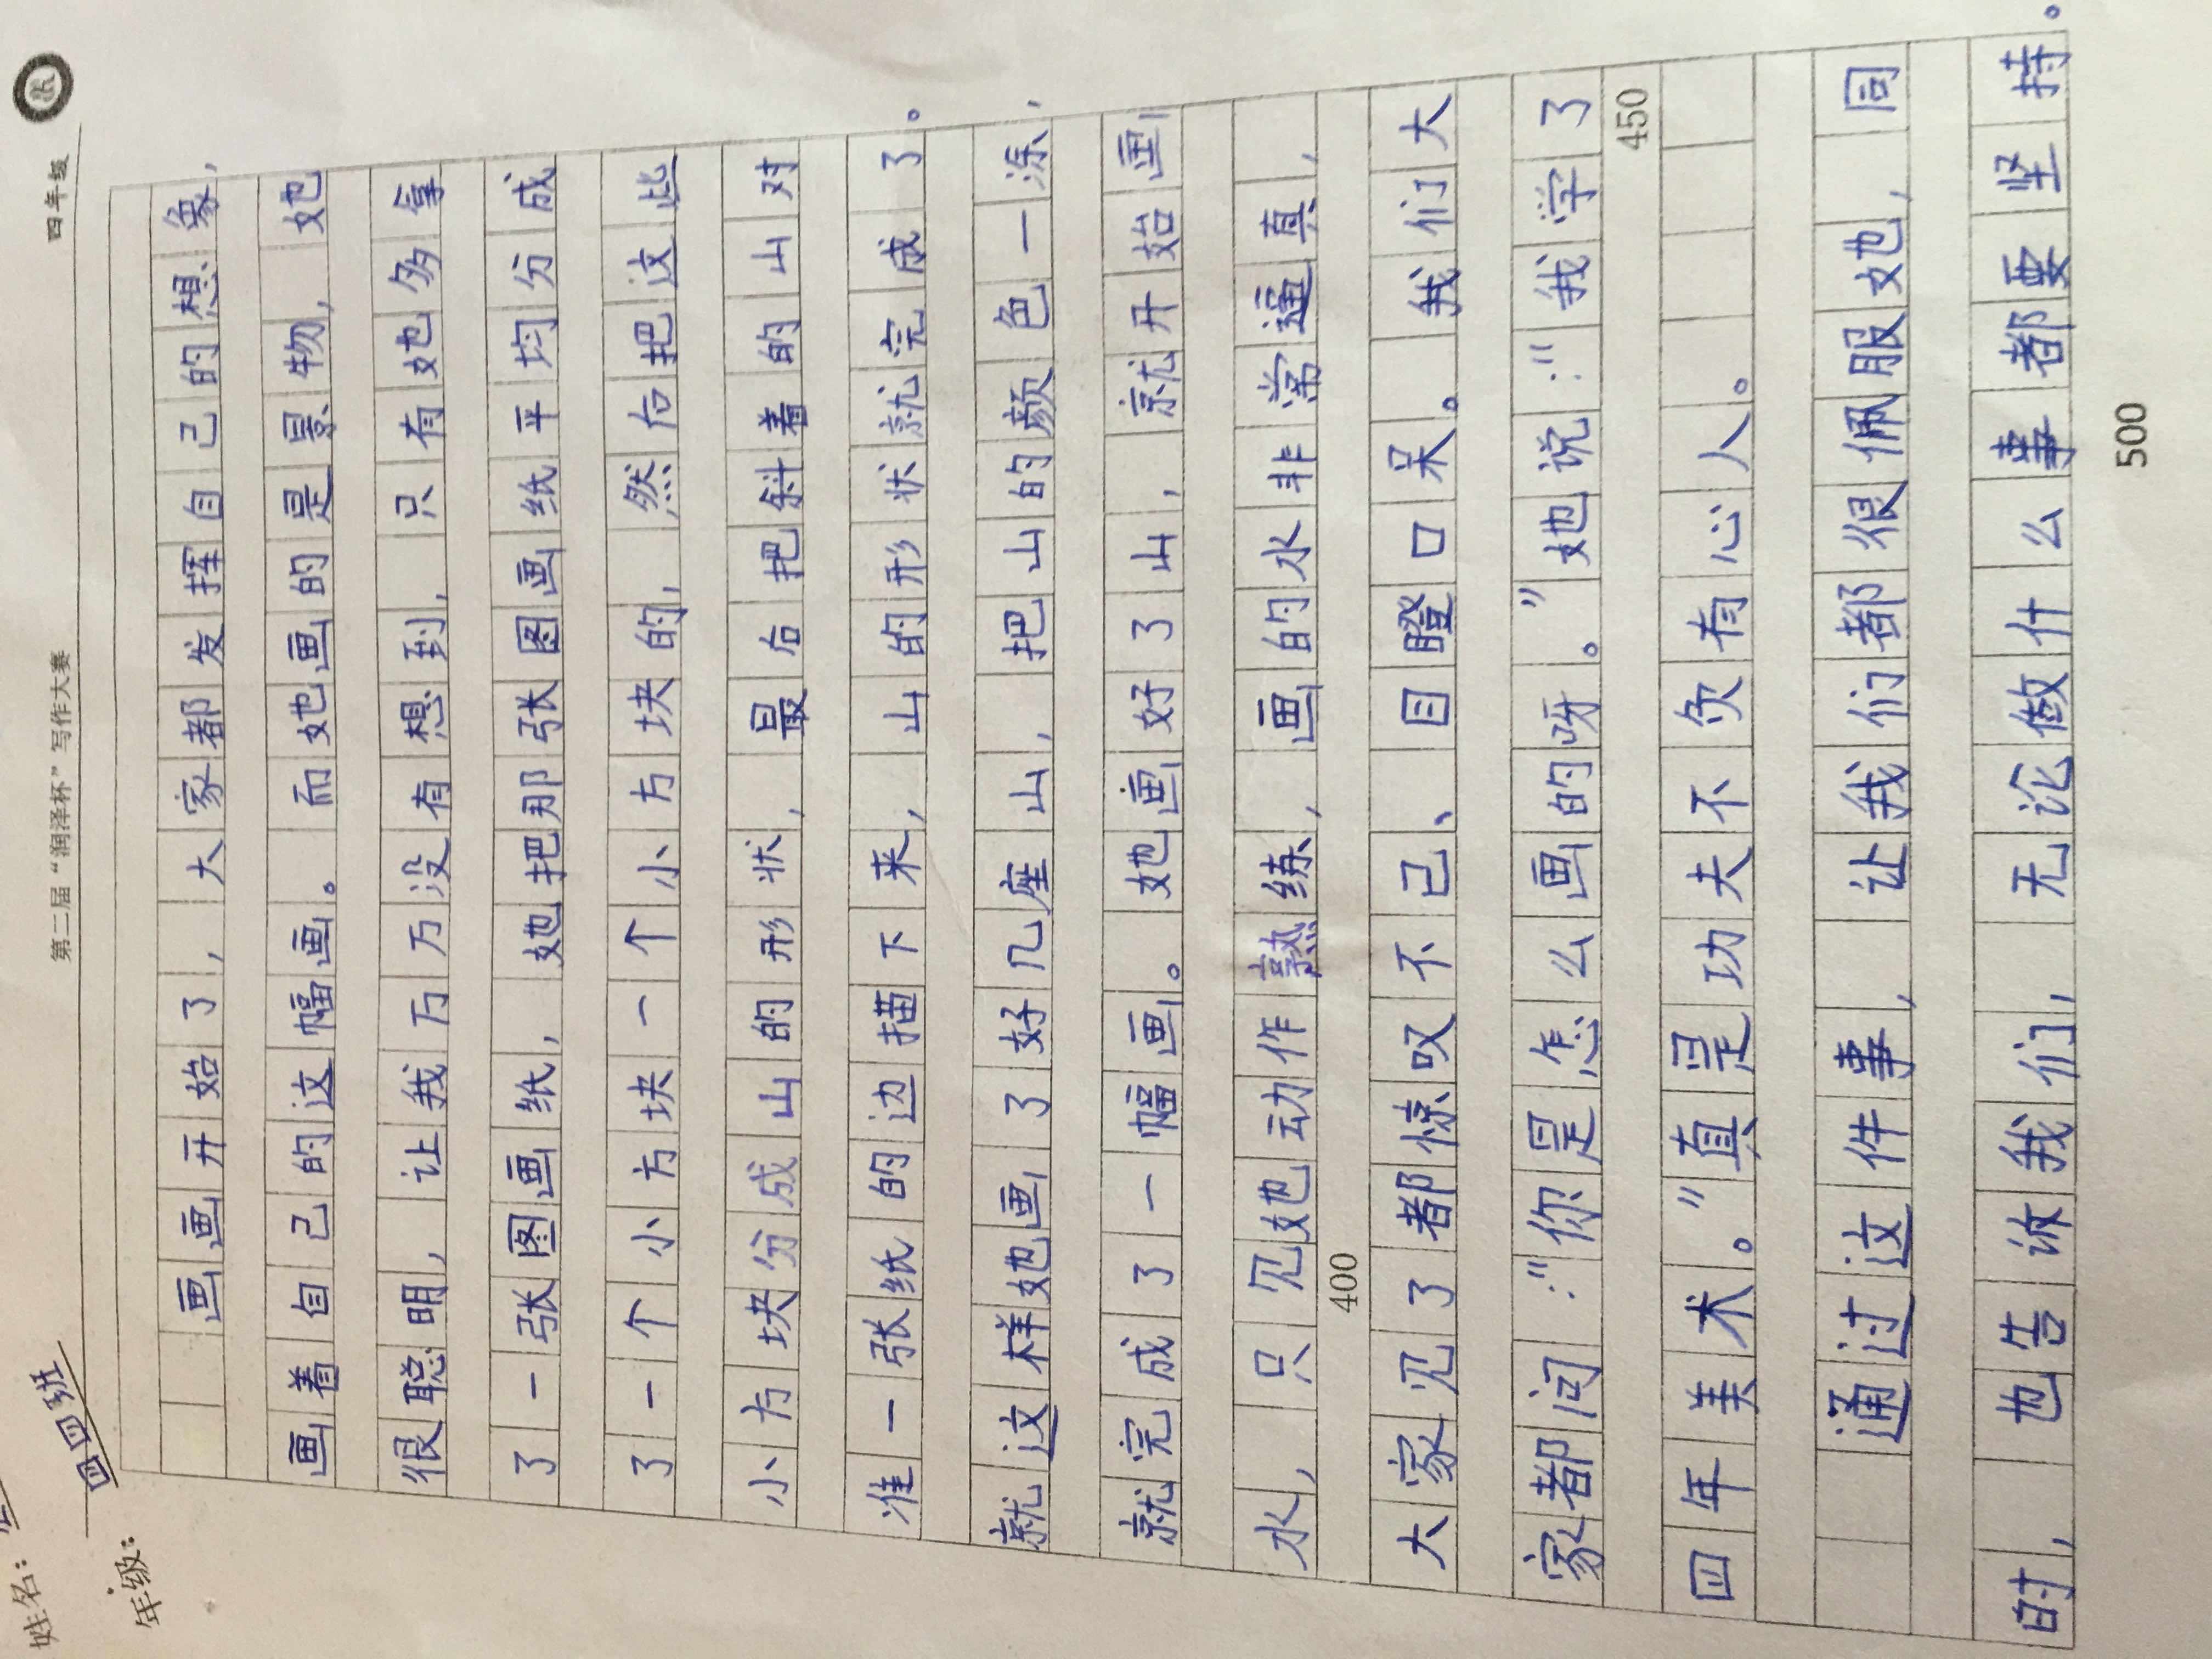 第二届“润泽杯”写作大赛 四年级
姓名：
年级： 四四班
画画开始了，大家都发挥自己的想象，
画着自己的这幅画。而她画的是景物，她
很聪明，让我万万没有想到，只有她多拿
了一张图画纸，她把那张图画纸平均分成
了一个小方块一个小方块的，然后把这些
小方块分成山的形状，最后把斜着的山对
准一张纸的边描下来，山的形状就完成了。
就这样她画了好几座山，把山的颜色一涂，
就完成了一幅画。她画好了山，就开始画
水，只见她动作熟练，画的水非常逼真，
400
大家见了都惊叹不已、目瞪口呆。我们大
家都问：“你是怎么画的呀。”她说：“我学了
450
四年美术。”真是功夫不负有心人。
通过这件事，让我们都很佩服她，同
时，也告诉我们，无论做什么事都要坚持。
500